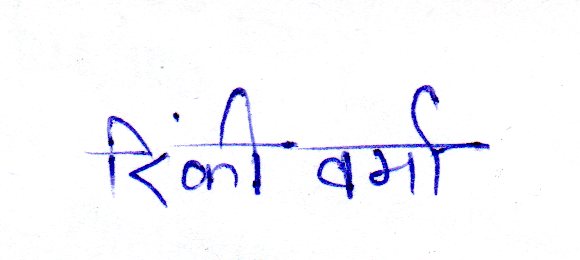 रिंकी वर्मा